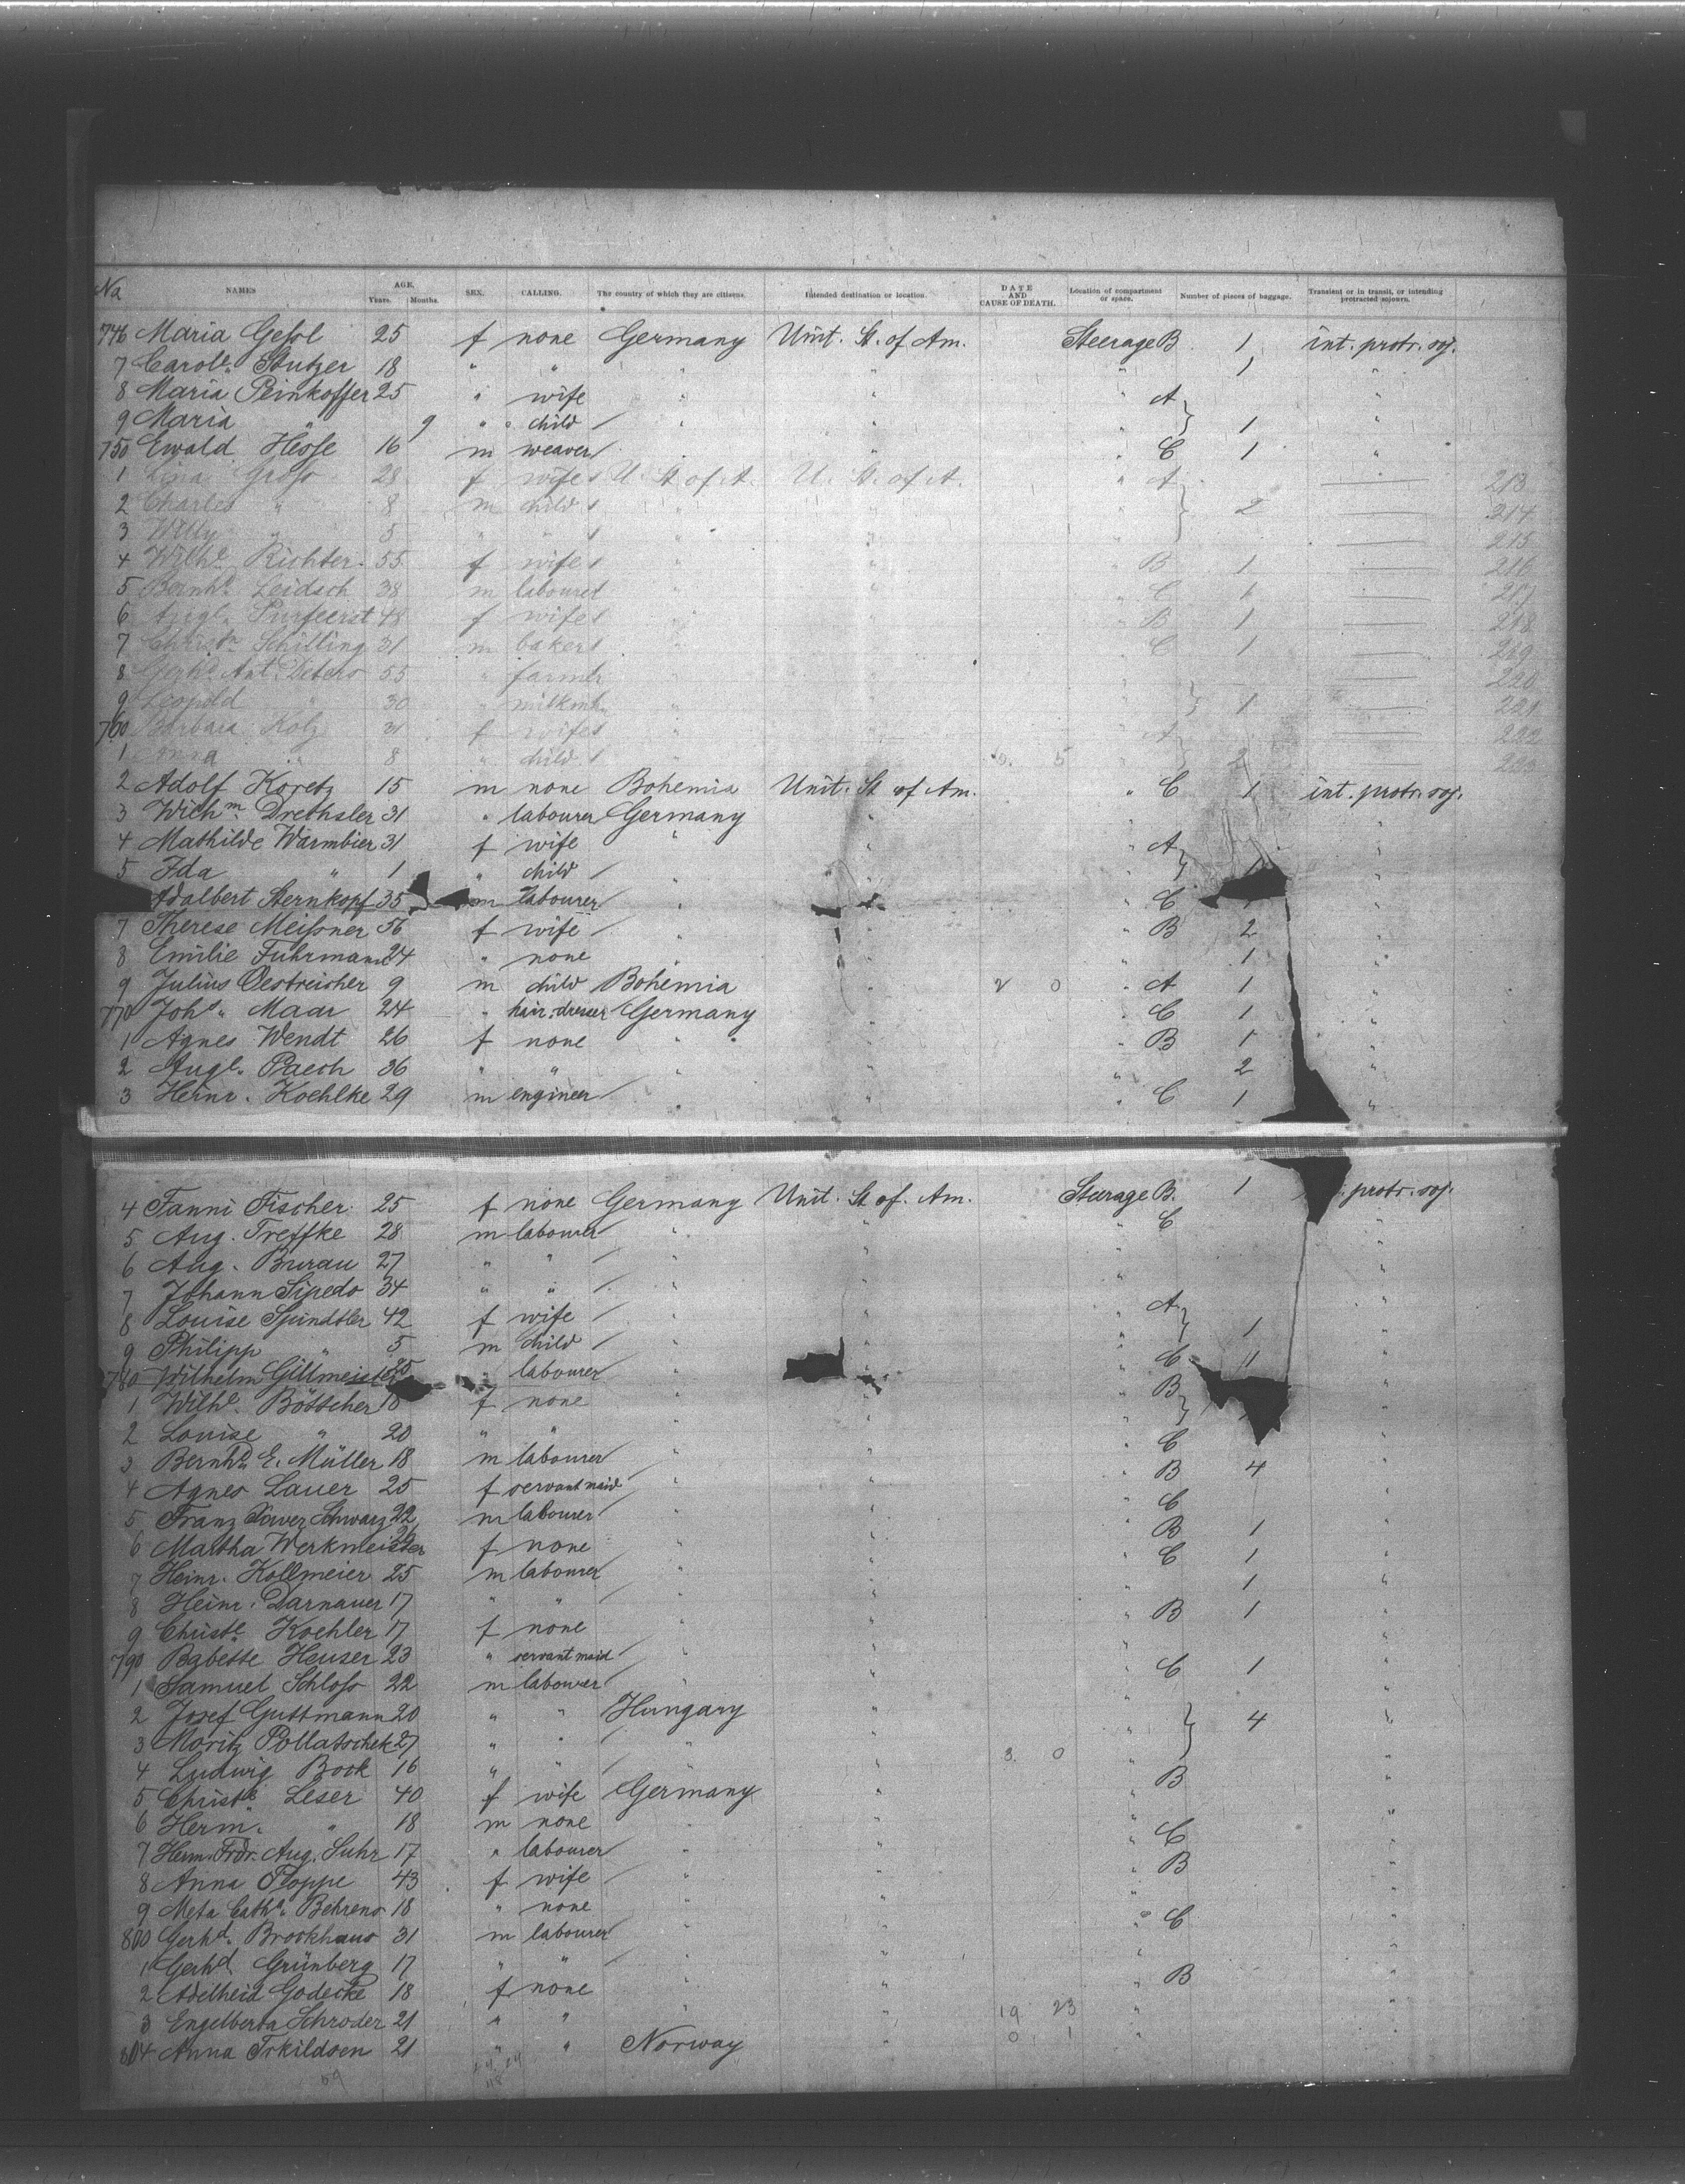 No NAMES AGE. Years. Months. SEX. CALLING. The country of which they are citizens. Intended destination or location. DATE AND CAUSE OF DEATH. Location of compartment or space. Number of pieces of baggage. Transient or in transit, or intending protracted sojourn.
746 Maria Geßl 25 f none Germany Unit. St. of Am. Steerage B 1 int. protr. soj.
7 Carole. Stutzer 18 " " " " " 1 "
8 Maria Peinkoffer 25 " wife " " " A "
9 Maria " 9 " child " " " } 1 "
750 Ewald Hesse 16 m weaver " " " C 1 "
1 Lina Groß 28 f wife U. St. of A. U. St. of A. " A 213
2 Charles " 8 m child " " " } 2 214
3 Willy " 5 " " " " " 215
4 Wilhe Richter 55 f wife " " " B 1 216
5 Bernhd. Leidsch 38 m labourer " " " C 1 217
6 48 f wife " " " B 1 218
7 Christn Schilling 31 m baker " " " C 1 219
8 Gerhd. Ant. Deters 55 " farmer " " " 220
9 Leopold " 30 " " " " } 1 221
760 Barbara Kolz 31 f wife " " " A 222
1 Anna " 8 " child " " 5 " } 2 223
2 Adolf Koretz 15 m none Bohemia Unit. St. of Am. " C 1 int. protr. soj.
3 Wilhm. Drechsler 31 " labourer Germany " " "
4 Mathilde Warmbier 31 f wife " " " A "
5 Ida " 1 " child " " " } 1 "
Adalbert Sternkopf 35 m labourer " " " C "
7 Therese Meißner 56 f wife " " " B 2 "
8 Emilie Fuhrmann 24 " none " " " 1 "
9 Julius Oestreicher 9 m child Bohemia " 2 0 " A 1 "
770 Johs. Maar 24 " hair-dresser Germany " " C 1 "
1 Agnes Wendt 26 f none " " " B 1 "
2 Auge. Paech 36 " " " " " 2 "
3 Heinr. Koehlke 29 m engineer " " " C 1 "
4 Fanni Fischer 25 f none Germany Unit. St. of. Am. Steerage B. 1 protr. soj.
5 Aug. Treffke 28 m labourer " " " C "
6 Aug. Burau 27 " " " " " "
7 Johann Sipedo 34 " " " " " "
8 Louise Spindtler 42 f wife " " " A "
9 Philipp " 5 m child " " " } 1 "
780 Wilhelm Gillmeister 25 " labourer " " " C 11 "
1 Wilhe. Böttscher 18 f none " " " B "
2 Louise " 20 " " " " " } "
3 Bernhd. E. Müller 18 m labourer " " " C "
4 Agnes Lauer 25 f servant maid " " " B 4 "
5 Franz Xaver Schwarz 22 m labourer " " " C "
6 Martha Werkmeister 26 f none " " " B 1 "
7 Heinr. Kollmeier 25 m labourer " " " C 1 "
8 Heinr. Darnauer 17 " " " " " 1 "
9 Christe. Koehler 17 f none " " " B 1 "
790 Babette Heuser 23 " servant maid " " " "
1 Samuel Schloß 22 m labourer " " " C 1 "
2 Josef Guttmann 20 " " Hungary " " "
3 Moritz Pollatschek 27 " " " " " } 4 "
4 Ludwig Book 16 " " " " 3 0 " "
5 Christe Leser 40 f wife Germany " " B "
6 Herm. " 18 m none " " " "
7 Herm. Frdr. Aug. Suhr 17 " labourer " " " C "
8 Anna Poppe 43 f wife " " " B "
9 Meta Cathe. Behrens 18 " none " " " "
800 Gerhd. Brockhaus 31 m labourer " " " C "
1 Gerhd. Grünberg 17 " " " " " "
2 Adelheid Godecke 18 f none " " " B "
3 Engelberta Schroder 21 " " " " 19 23 " "
804 Anna Trkildsen 21 " " Norway " 0 1 " "
59